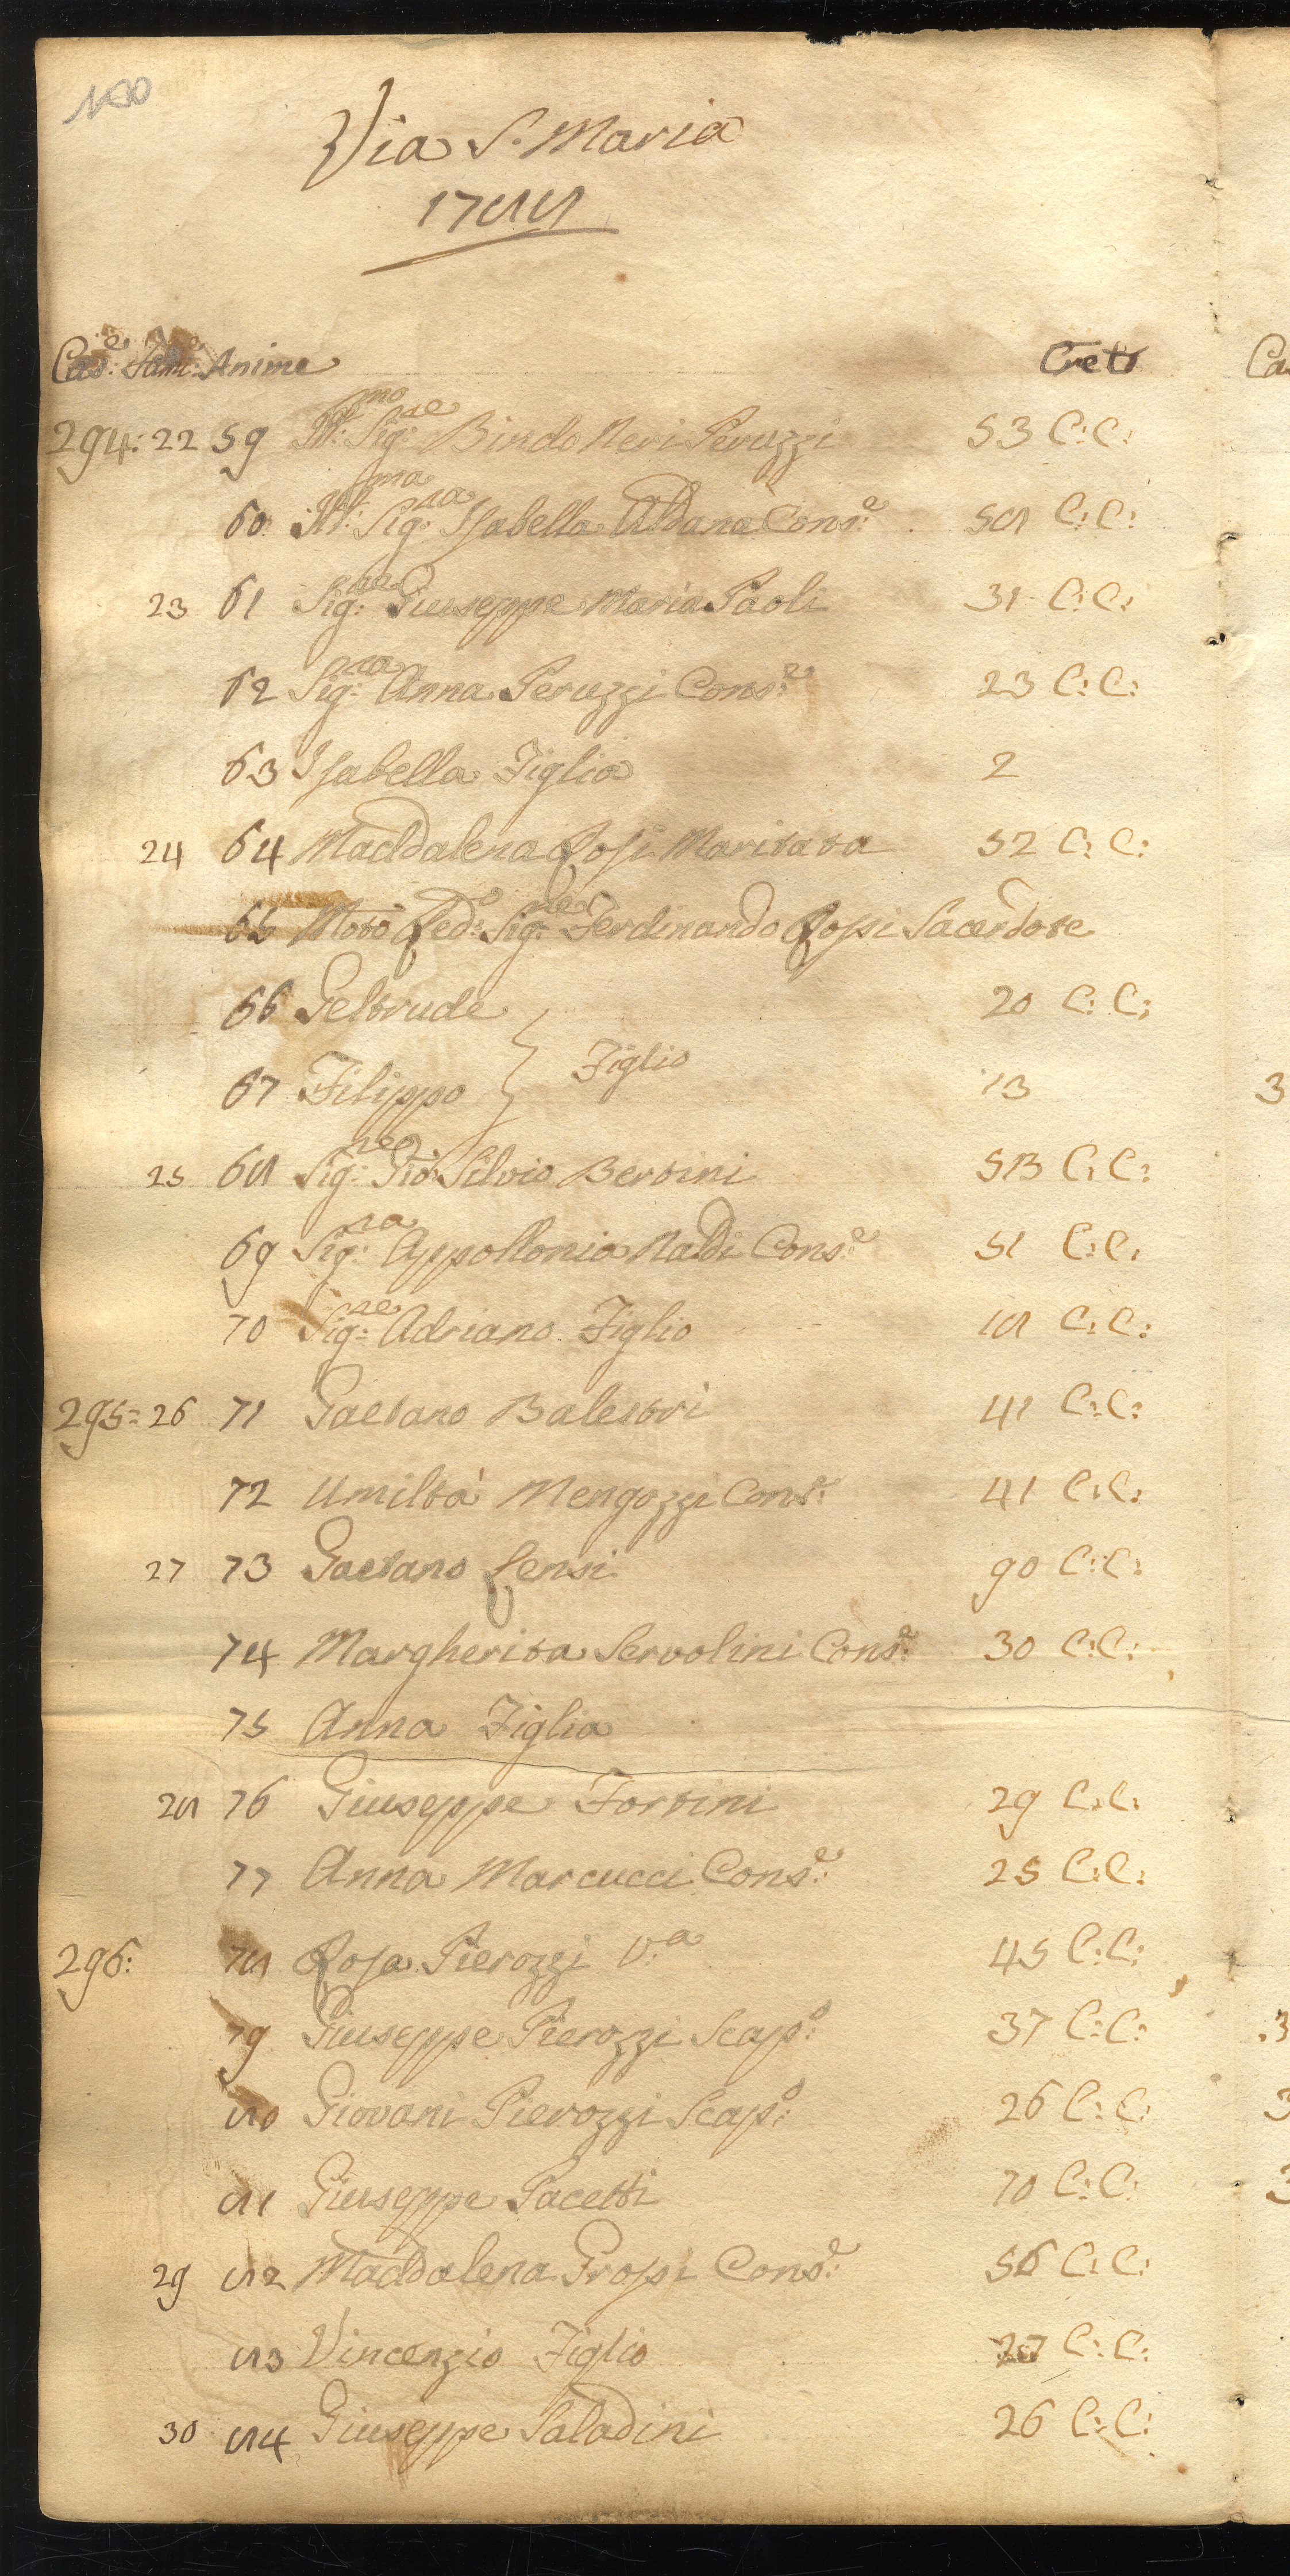 180
Via S. Maria
1788
Case: Fam: Anime Età
294: 22 59 Ill:mo Sig:re Bindo Neri Peruzzi 53 C: C:
60 Ill:ma Sig:ra Isabella Aldana Cons:e 58 C: C:
23 61 Sig:re Giuseppe Maria Paoli 31 C: C:
62 Sig:ra Anna Peruzzi Cons:e 23 C: C:
63 Isabella Figlia 2
24 64 Maddalena Rossi Maritata 52 C: C:
65 Molto Red:o Sig:re Ferdinando Rossi Sacerdote
66 Geltrude 20 C: C:
Figlio
67 Filippo 13
25 68 Sig:re Gio: Silvio Bertini C: C:
69 Sig:ra Appollonia Naldi Cons:e 51 C: C:
70 Sig:re Adriano Figlio 18 C: C:
295= 26 71 Gaetano Balestri 41 C: C:
72 Umiltà Mengozzi Cons:e 41 C: C:
27 73 Gaetano Rensi 90 C: C:
74 Margherita Servolini Cons:e 30 C: C:
75 Anna Figlia
28 76 Giuseppe Fortini 29 C: C:
77 Anna Marcucci Cons:e 25 C: C:
296: 78 Rosa Pierozzi V:a 45 C: C:
79 Giuseppe Pierozzi Scap:o 37 C: C:
80 Giovani Pierozzi Scap:o 26 C: C:
81 Giuseppe Pacetti 70 C: C:
29 82 Maddalena Grossi Cons:e 56 C: C:
83 Vincenzio Figlio 27 C: C:
30 84 Giuseppe Saladini 26 C: C: